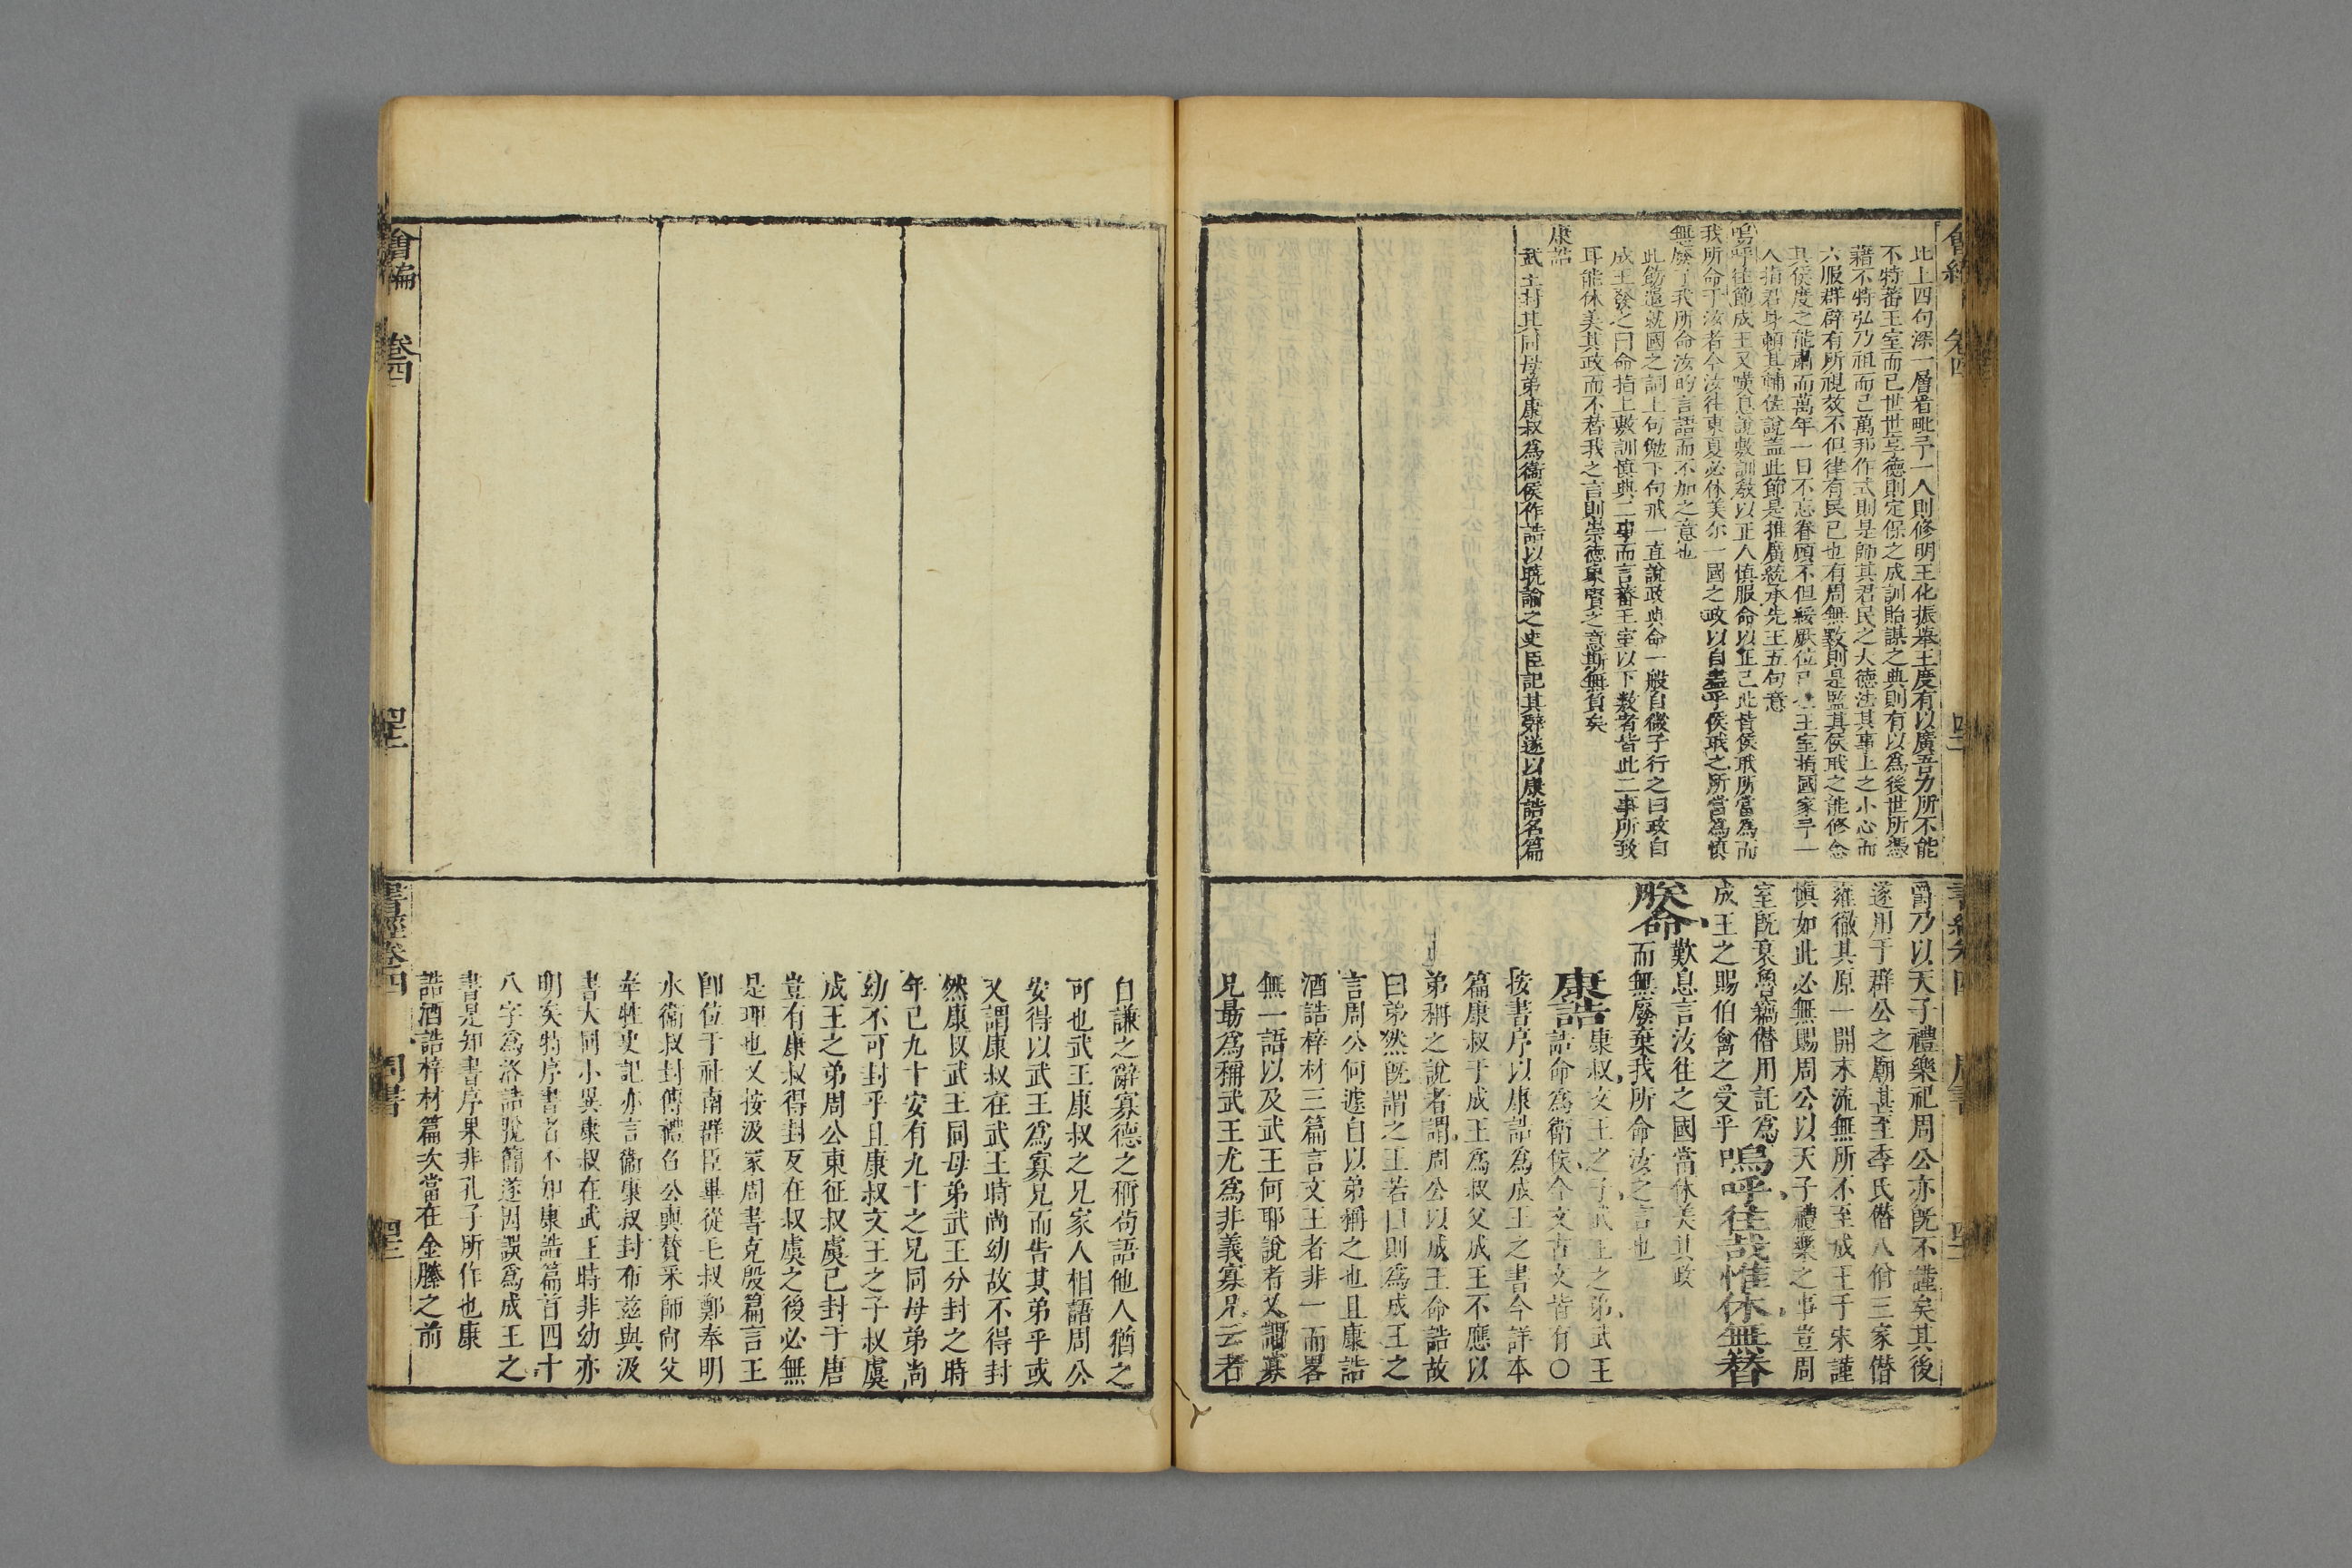 此上四句深一層看毗予一人則修明王化振舉王度有以廣吾力所不能
不特蕃王室而已世世享德則定保之成訓貽謀之典則有以為後世所憑
藉不特弘乃祖而已萬邦作式則是師其君民之大德法其事上之小心而
六服群辟有所視效不但律有民已也有周無斁則是監其侯職之能修念
其侯度之能肅而萬年一日不忘眷顧不但綏厥位已 王室指國家予一
人指君身頼其輔佐說盖此節是推廣統承先王五句意
嗚呼徃節成王又嘆息說敷訓敎以正人慎服命以正己此皆侯職所當為而
我所命于汝者今汝徃東夏必休美尔一國之政以自盡乎侯職之所當為慎
無廢了我所命汝的言語而不加之意也
此飭遣就國之詞上句勉下句戒一直說政與命一般自微子行之曰政自
成王發之曰命指上敷訓慎典二事而言蕃王室以下數者皆此二事所致
耳能休美其政而不替我之言則崇德象賢之意斯無負矣
康誥
武王封其同母弟康叔爲衞侯作誥以曉諭之史臣記其辭遂以康誥名篇
爵乃以天子禮樂祀周公亦旣不謹矣其後
遂用于群公之廟甚至季氏僭八佾三家僭
雍徹其原一開末流無所不至成王于宋謹
慎如此必無賜周公以天子禮樂之事豈周
室旣衰魯竊僭用託爲
成王之賜伯禽之受乎嗚呼徃哉惟休無替
歎息言汝徃之國當休美其政
朕命而無廢棄我所命汝之言也
康誥康叔文王之子武王之弟武王
誥命爲衛侯今文古文皆有○
按書序以康誥為成王之書今詳本
篇康叔于成王爲叔父成王不應以
弟稱之說者謂周公以成王命誥故
曰弟然旣謂之王若曰則爲成王之
言周公何遽自以弟稱之也且康誥
酒誥梓材三篇言文王者非一而畧
無一語以及武王何耶說者又謂寡
兄勗爲稱武王尤爲非義寡兄云者
自謙之辭寡德之稱苟語他人猶之
可也武王康叔之兄家人相語周公
安得以武王爲寡兄而告其弟乎或
又謂康叔在武王時尚幼故不得封
然康叔武王同母弟武王分封之時
年已九十安有九十之兄同母弟尚
幼不可封乎且康叔文王之子叔虞
成王之弟周公東征叔虞已封于唐
豈有康叔得封反在叔虞之後必無
是理也又按汲冢周書克殷篇言王
卽位于社南群臣畢從毛叔鄭奉明
水衞叔封傳禮召公奭贊采師尚父
牽牲史記亦言衞康叔封布兹與汲
書大同小異康叔在武王時非幼亦
明矣特序書者不知康誥篇首四十
八字爲洛誥脫簡遂因誤爲成王之
書是知書序果非孔子所作也康
誥酒誥梓材篇次當在金縢之前
會編 卷四 四三
書經卷四 周書 四三